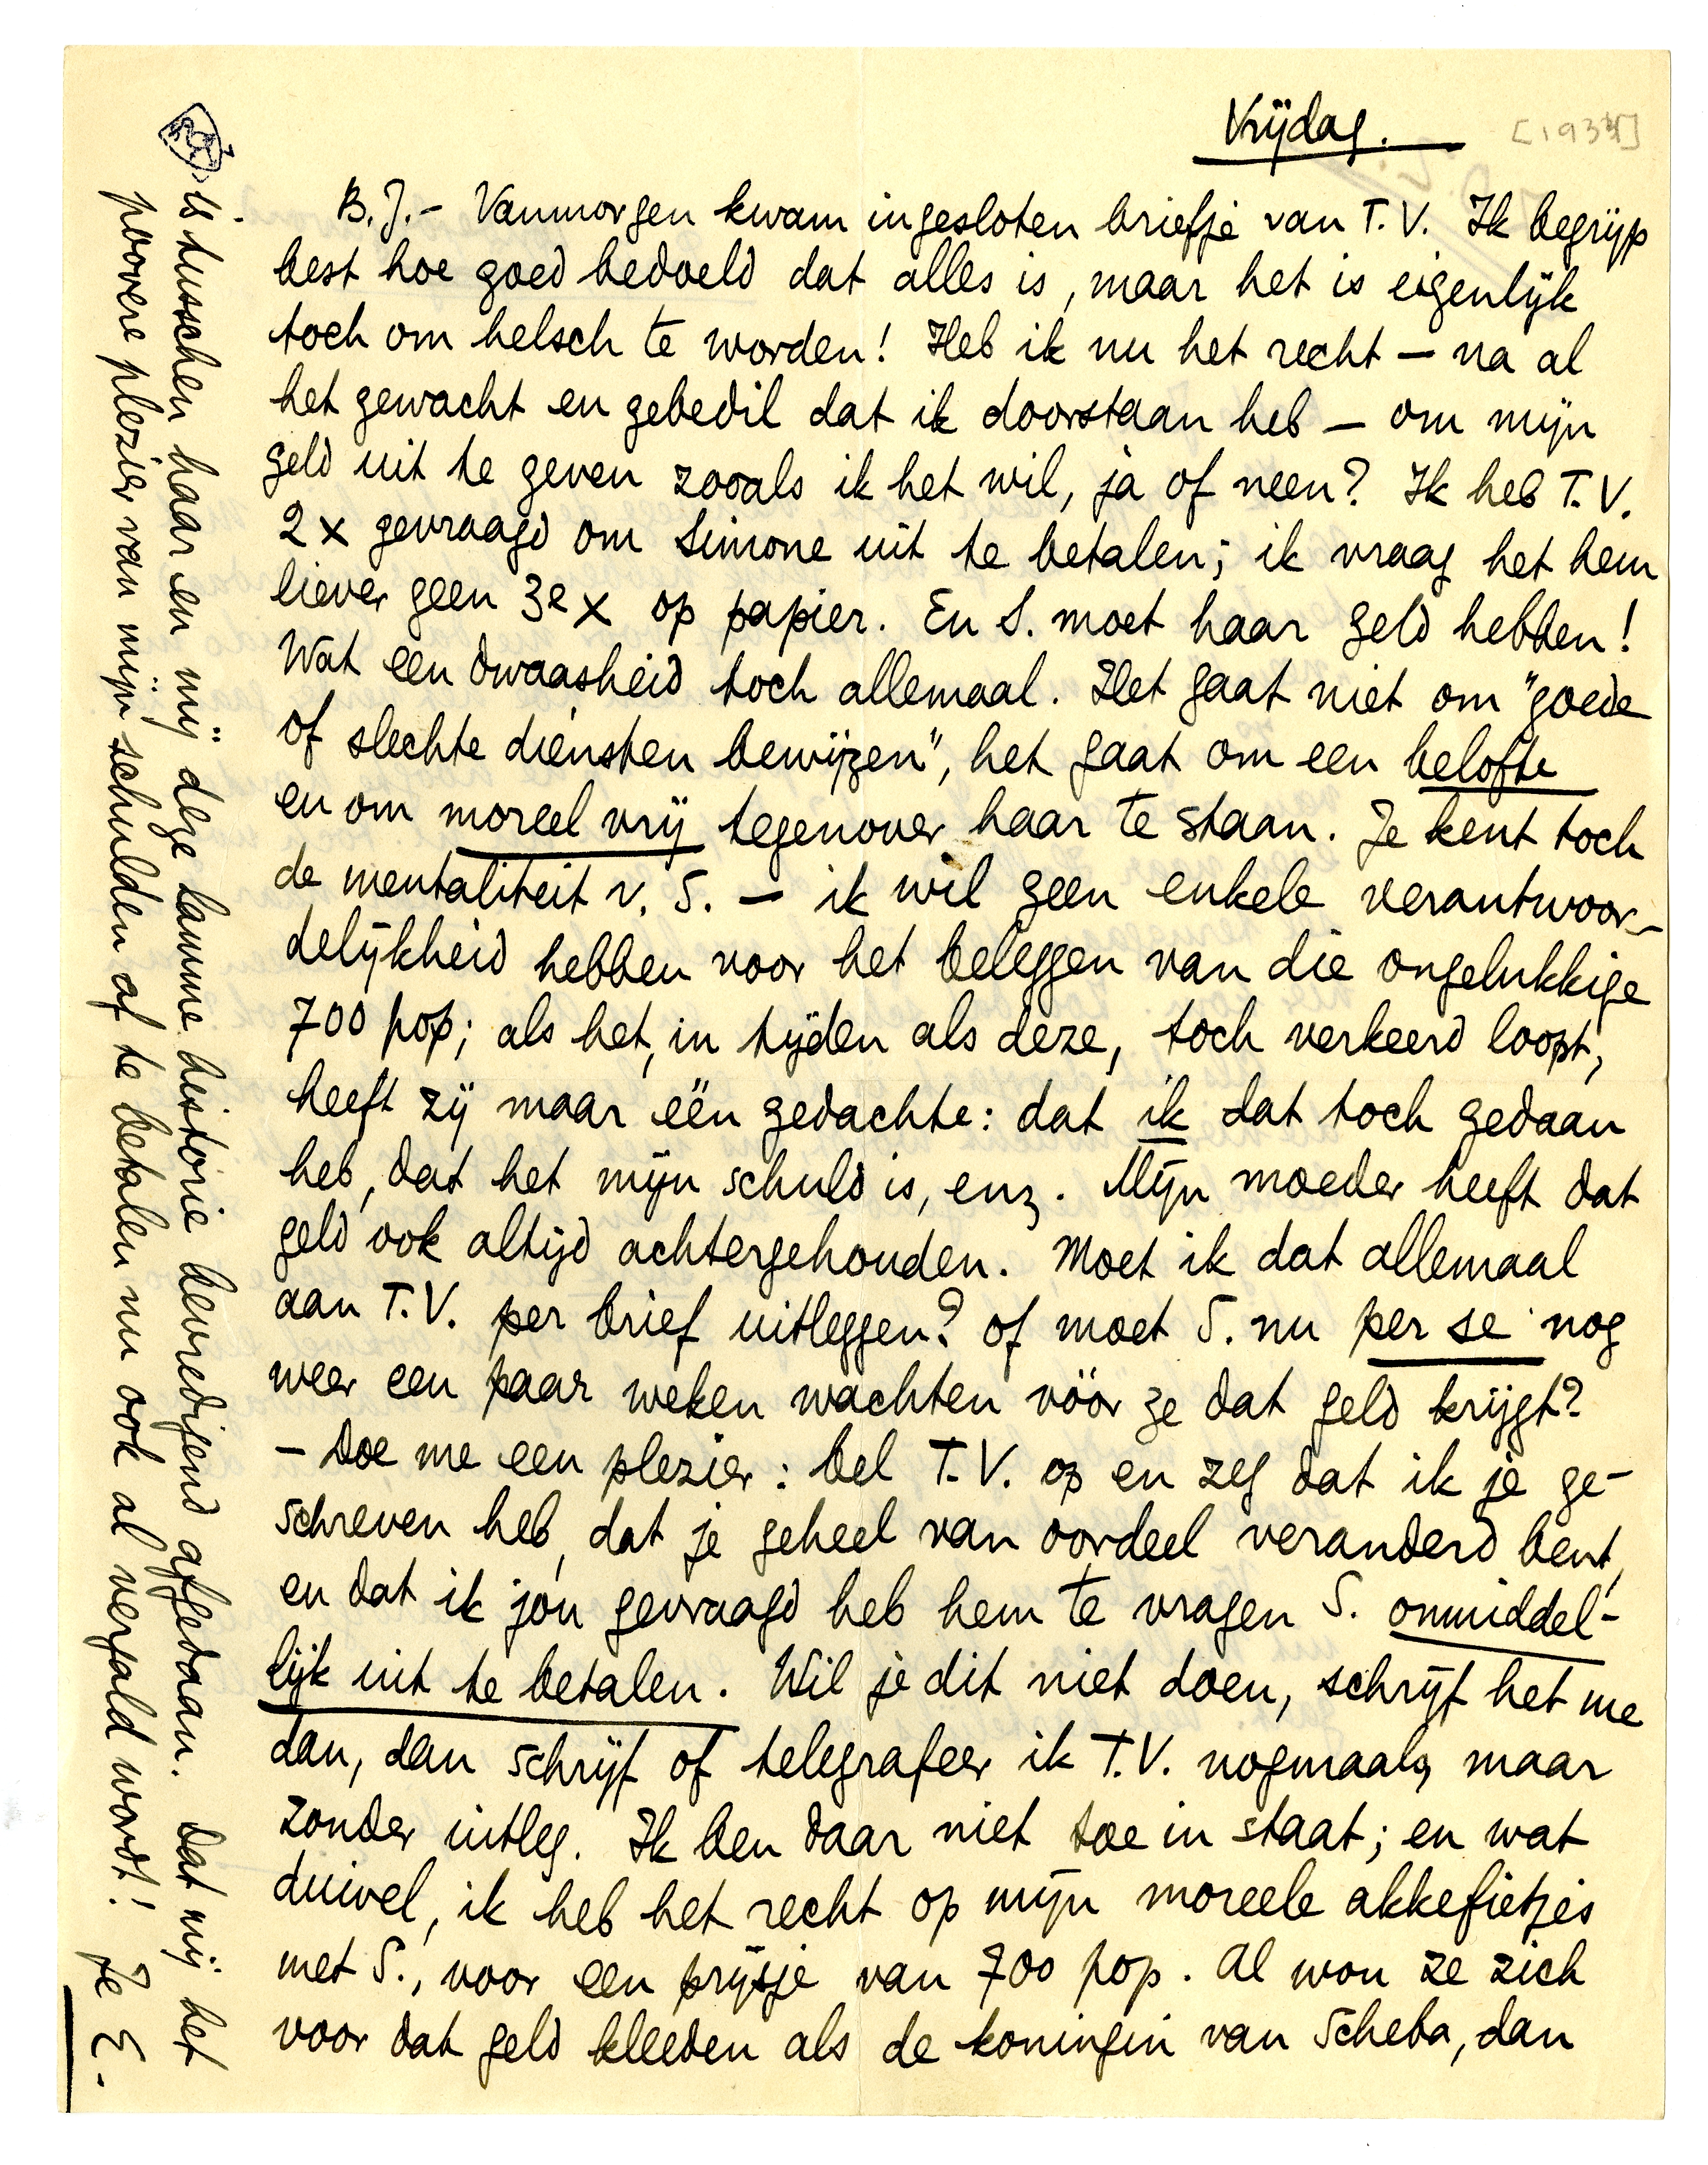 Vrijdag.
[1933]
B.J.- Vanmorgen kwam ingesloten briefje van T.V. Ik begrijp
best hoe goed bedoeld dat alles is, maar het is eigenlijk
toch om helsch te worden! Heb ik nu het recht — na al
het gewacht en gebedil dat ik doorstaan heb — om mijn
geld uit te geven zooals ik het wil, ja of neen? Ik heb T.V.
2 x gevraagd om Simone uit te betalen; ik vraag het hem
liever geen 3e x op papier. En S. moet haar geld hebben!
Wat een dwaasheid toch allemaal. Het gaat niet om "goede
of slechte diensten bewijzen", het gaat om een belofte
en om moreel vrij tegenover haar te staan. Je kent toch
de mentaliteit v. S. — ik wil geen enkele verantwoor-
delijkheid hebben voor het beleggen van die ongelukkige
700 pop; als het, in tijden als deze, toch verkeerd loopt,
heeft zij maar één gedachte: dat ik dat toch gedaan
heb, dat het mijn schuld is, enz. Mijn moeder heeft dat
geld ook altijd achtergehouden. Moet ik dat allemaal
aan T.V. per brief uitleggen? of moet S. nu per se nog
weer een paar weken wachten vóór ze dat geld krijgt?
- Doe me een plezier: bel T.V. op en zeg dat ik je ge-
schreven heb, dat je geheel van oordeel veranderd bent,
en dat ik jóu gevraagd heb hem te vragen S. onmiddel-
lijk uit te betalen. Wil je dit niet doen, schrijf het me
dan, dan schrijf of telegrafeer ik T.V. nogmaals, maar
zonder uitleg. Ik ben daar niet toe in staat; en wat
duivel, ik heb het recht op mijn moreele akkefietjes
met S., voor een prijsje van 700 pop. Al wou ze zich
voor dat geld kleeden als de koningin van Scheba, dan
is tusschen haar en mij deze lamme historie bevredigend afgedaan. Dat mij het
poovere plezier van mijn schulden af te betalen nu ook al vergald wordt! Je E.